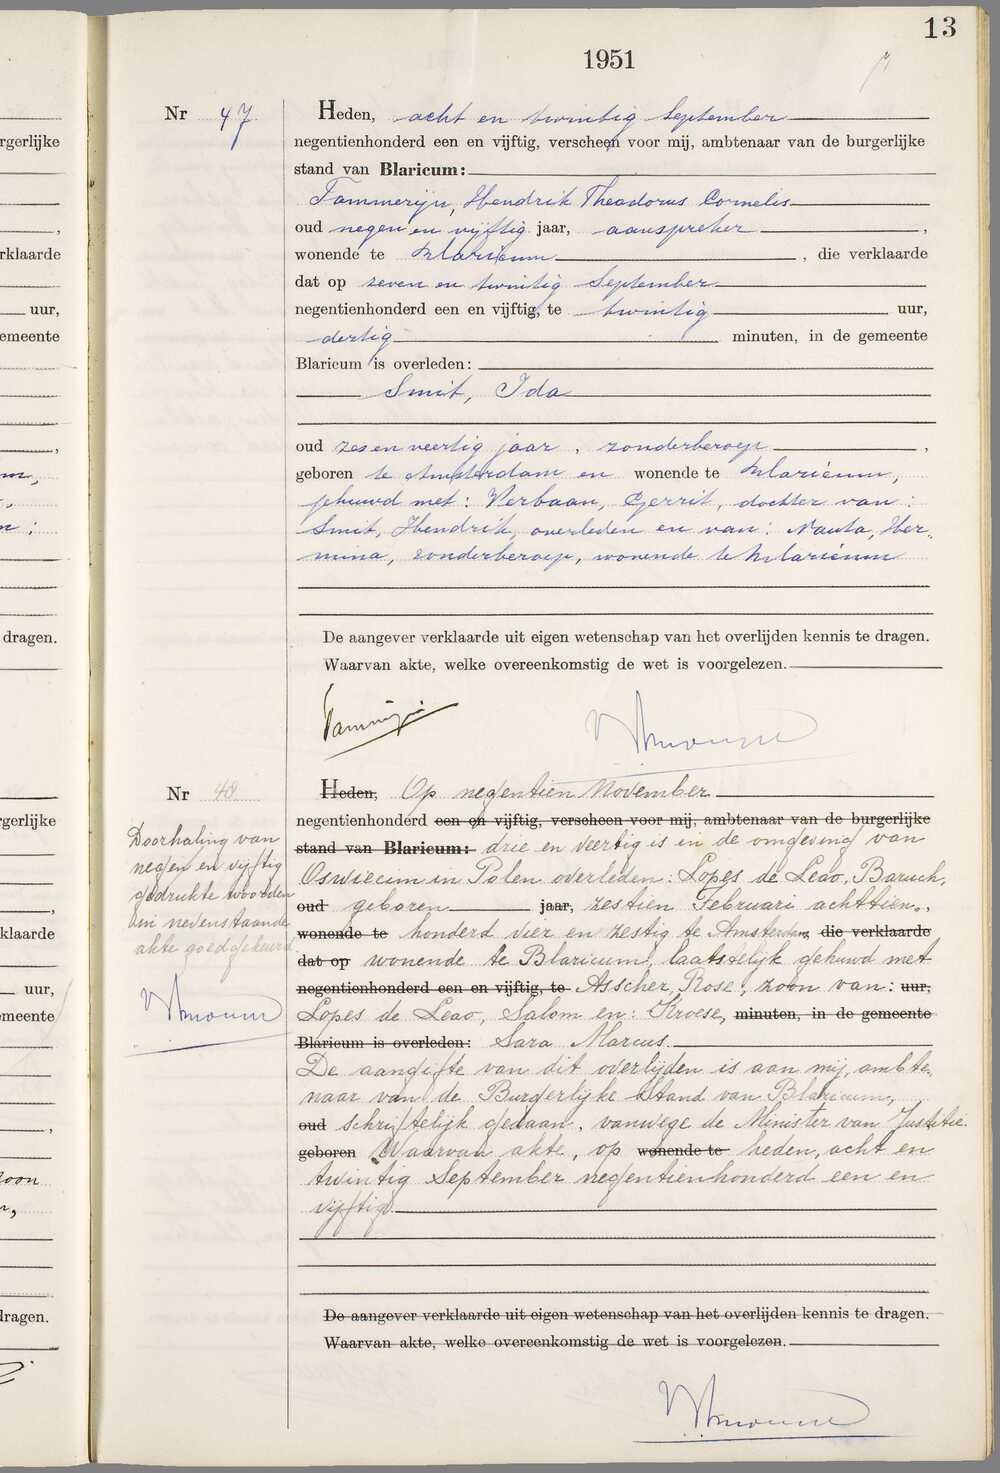 13
1951
Nr 47
Heden, acht en twintig September
negentienhonderd een en vijftig, verscheen voor mij, ambtenaar van de burgerlijke
stand van Blaricum:
Tammerijn, Hendrik Theodorus Cornelis
oud negen en vijftig jaar, aanspreker ,
wonende te Blaricum , die verklaarde
dat op zeven en twintig September
negentienhonderd een en vijftig, te twintig uur,
dertig minuten, in de gemeente
Blaricum is overleden:
Smit, Ida
oud zes en veertig jaar, zonder beroep ,
geboren te Amsterdam en wonende te Blaricum,
gehuwd met: Verbaan, Gerrit, dochter van:
Smit, Hendrik, overleden en van: Nauta, Her-
mina, zonder beroep, wonende te Blaricum
De aangever verklaarde uit eigen wetenschap van het overlijden kennis te dragen.
Waarvan akte, welke overeenkomstig de wet is voorgelezen.
Nr 48
Doorhaling van
negen en vijftig
gedrukte woorden
in nevenstaande
akte goedgekeurd.
Heden, Op negentien November
negentienhonderd een en vijftig, verscheen voor mij, ambtenaar van de burgerlijke
stand van Blaricum: drie en veertig is in de omgeving van
Oswiecim in Polen overleden: Lopes de Leao, Baruch,
oud geboren jaar, zestien Februari achttien-
wonende te honderd vier en zestig te Amsterdam, die verklaarde
dat op wonende te Blaricum, laatstelijk gehuwd met
negentienhonderd een en vijftig, te Asscher, Rose, zoon van: uur,
Lopes de Leao, Salom en: Kroese, minuten, in de gemeente
Blaricum is overleden: Sara Marcus.
De aangifte van dit overlijden is aan mij, ambte-
naar van de Burgerlijke Stand van Blaricum,
oud schriftelijk gedaan, vanwege de Minister van Justitie.
geboren Waarvan akte, op wonende te heden, acht en
twintig September negentienhonderd een en
vijftig.
De aangever verklaarde uit eigen wetenschap van het overlijden kennis te dragen.
Waarvan akte, welke overeenkomstig de wet is voorgelezen.